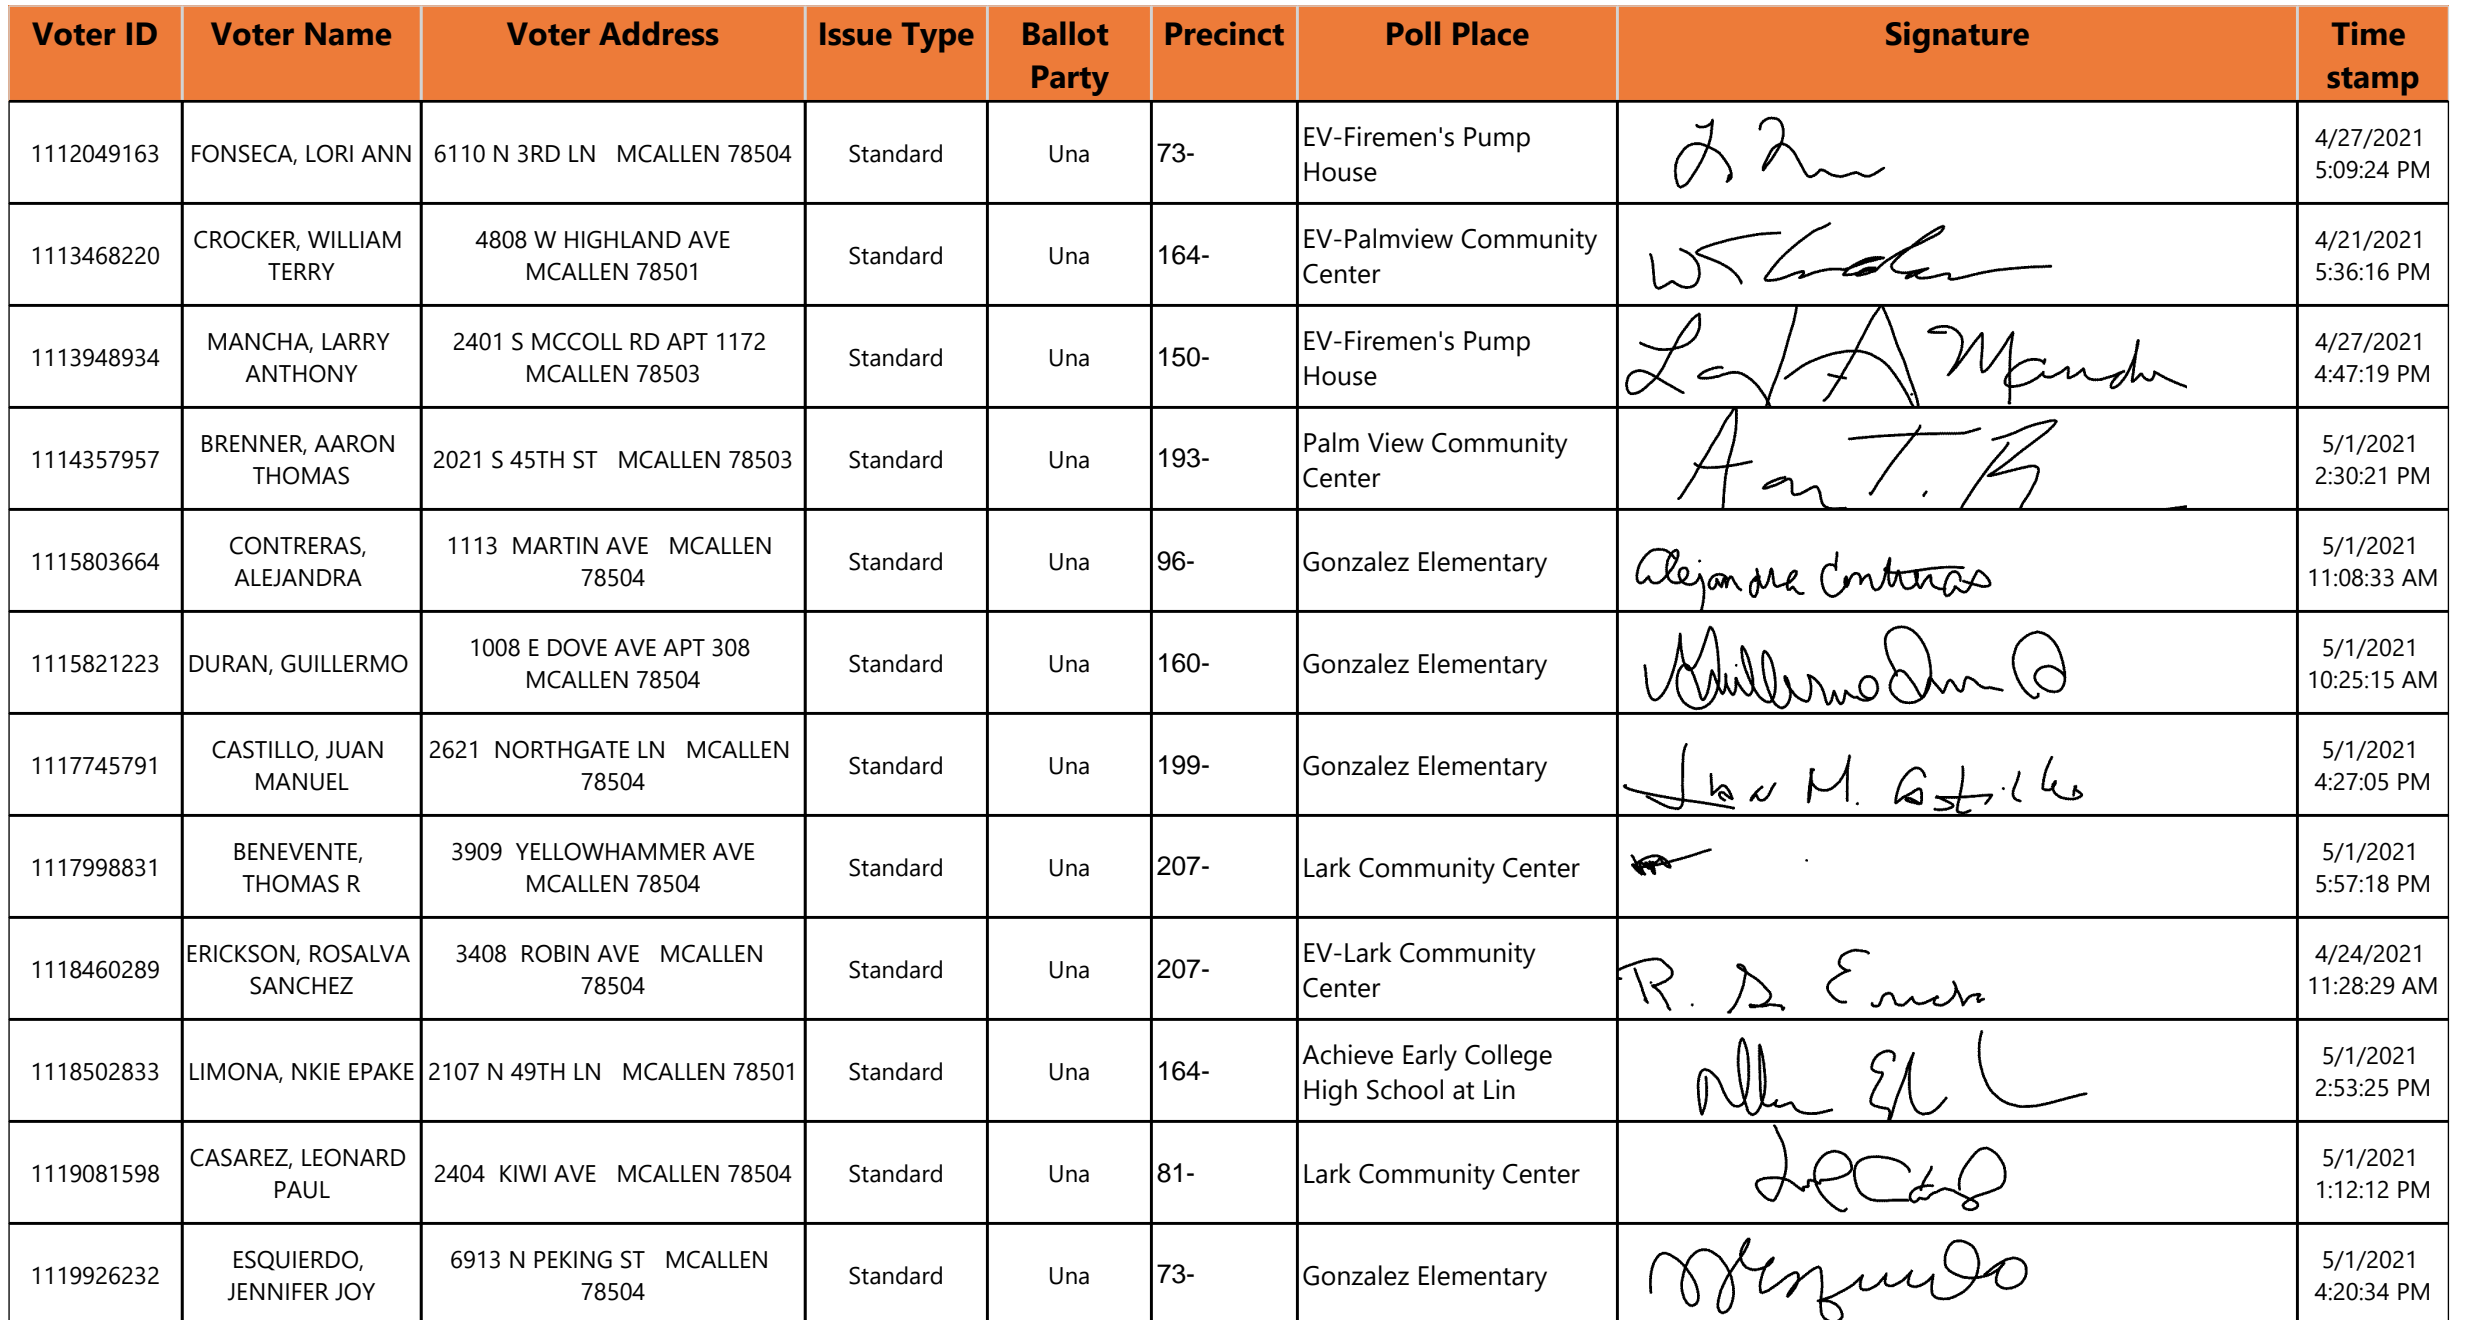 Voter ID Voter Name Voter Address Issue Type Ballot Party Precinct Poll Place Signature Time stamp
1112049163 FONSECA, LORI ANN 6110 N 3RD LN MCALLEN 78504 Standard Una 73- EV-Firemen's Pump House 4/27/2021 5:09:24 PM
1113468220 CROCKER, WILLIAM TERRY 4808 W HIGHLAND AVE MCALLEN 78501 Standard Una 164- EV-Palmview Community Center 4/21/2021 5:36:16 PM
1113948934 MANCHA, LARRY ANTHONY 2401 S MCCOLL RD APT 1172 MCALLEN 78503 Standard Una 150- EV-Firemen's Pump House 4/27/2021 4:47:19 PM
1114357957 BRENNER, AARON THOMAS 2021 S 45TH ST MCALLEN 78503 Standard Una 193- Palm View Community Center 5/1/2021 2:30:21 PM
1115803664 CONTRERAS, ALEJANDRA 1113 MARTIN AVE MCALLEN 78504 Standard Una 96- Gonzalez Elementary Alejandra Contreras 5/1/2021 11:08:33 AM
1115821223 DURAN, GUILLERMO 1008 E DOVE AVE APT 308 MCALLEN 78504 Standard Una 160- Gonzalez Elementary Guillermo 5/1/2021 10:25:15 AM
1117745791 CASTILLO, JUAN MANUEL 2621 NORTHGATE LN MCALLEN 78504 Standard Una 199- Gonzalez Elementary Juan M. Castillo 5/1/2021 4:27:05 PM
1117998831 BENEVENTE, THOMAS R 3909 YELLOWHAMMER AVE MCALLEN 78504 Standard Una 207- Lark Community Center 5/1/2021 5:57:18 PM
1118460289 ERICKSON, ROSALVA SANCHEZ 3408 ROBIN AVE MCALLEN 78504 Standard Una 207- EV-Lark Community Center R. S. 4/24/2021 11:28:29 AM
1118502833 LIMONA, NKIE EPAKE 2107 N 49TH LN MCALLEN 78501 Standard Una 164- Achieve Early College High School at Lin 5/1/2021 2:53:25 PM
1119081598 CASAREZ, LEONARD PAUL 2404 KIWI AVE MCALLEN 78504 Standard Una 81- Lark Community Center 5/1/2021 1:12:12 PM
1119926232 ESQUIERDO, JENNIFER JOY 6913 N PEKING ST MCALLEN 78504 Standard Una 73- Gonzalez Elementary 5/1/2021 4:20:34 PM